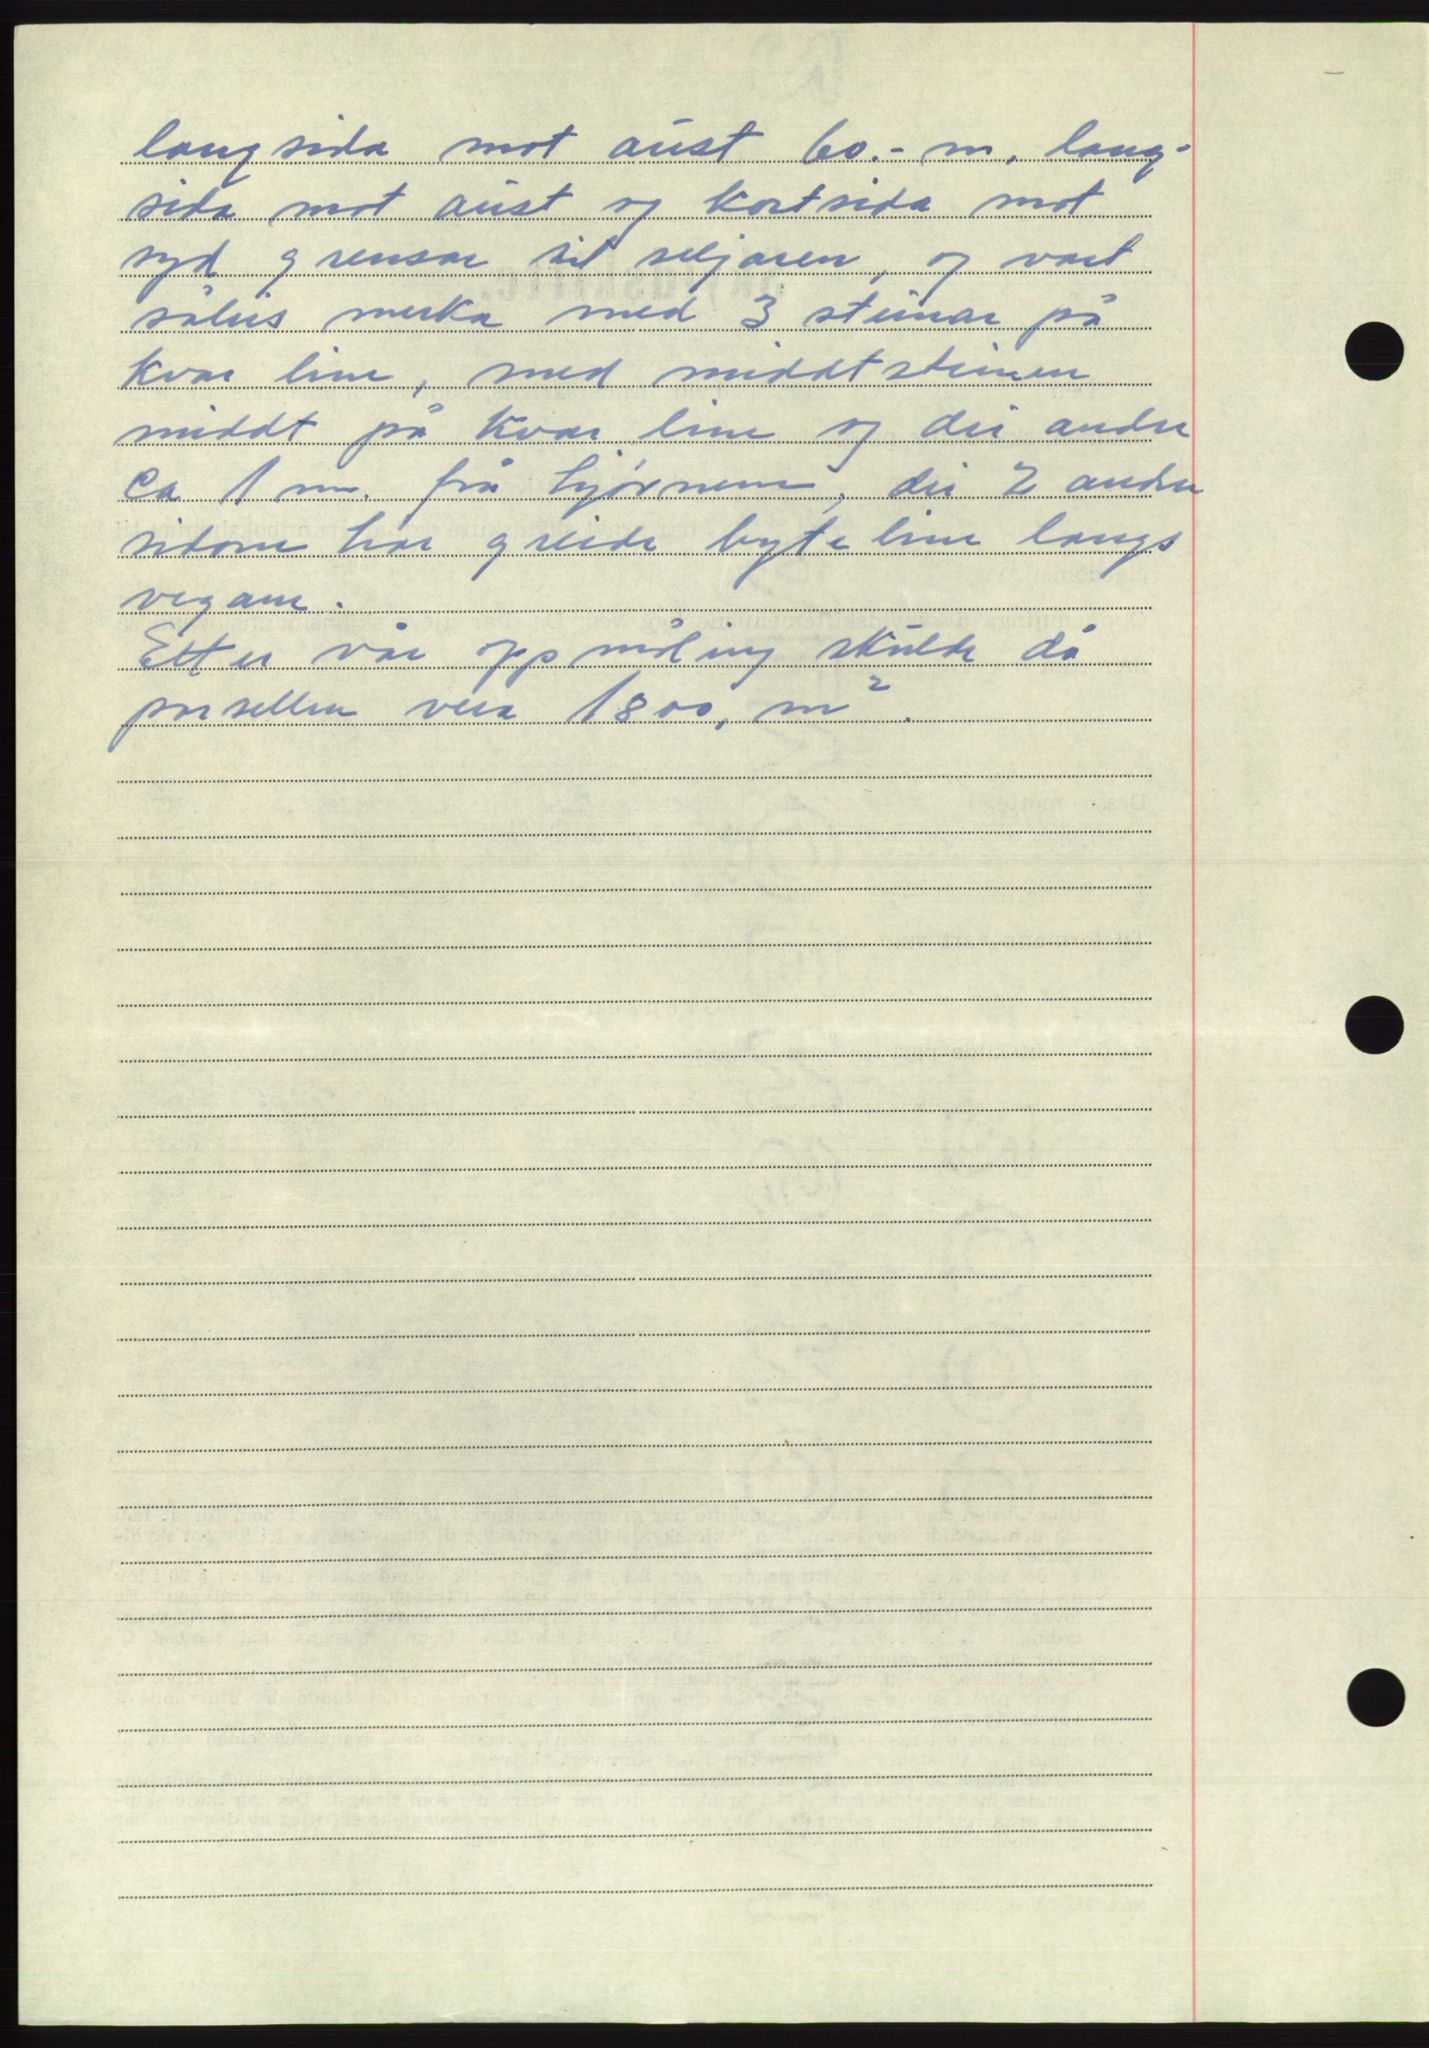 langsida mot aust 60.- m. lang-
sida mot aust og kortsida mot
syd grensar til seljaren, og vart
såleis merka med 3 steinar på
kvar line, med middtsteinen
middt på kvar line og dei andre
ca 1 m. frå hjørnene, dei 2 andre
sidone har greide byteline langs
vegane.
Etter vår oppmåling skulde då
parsellen vera 1800, m².